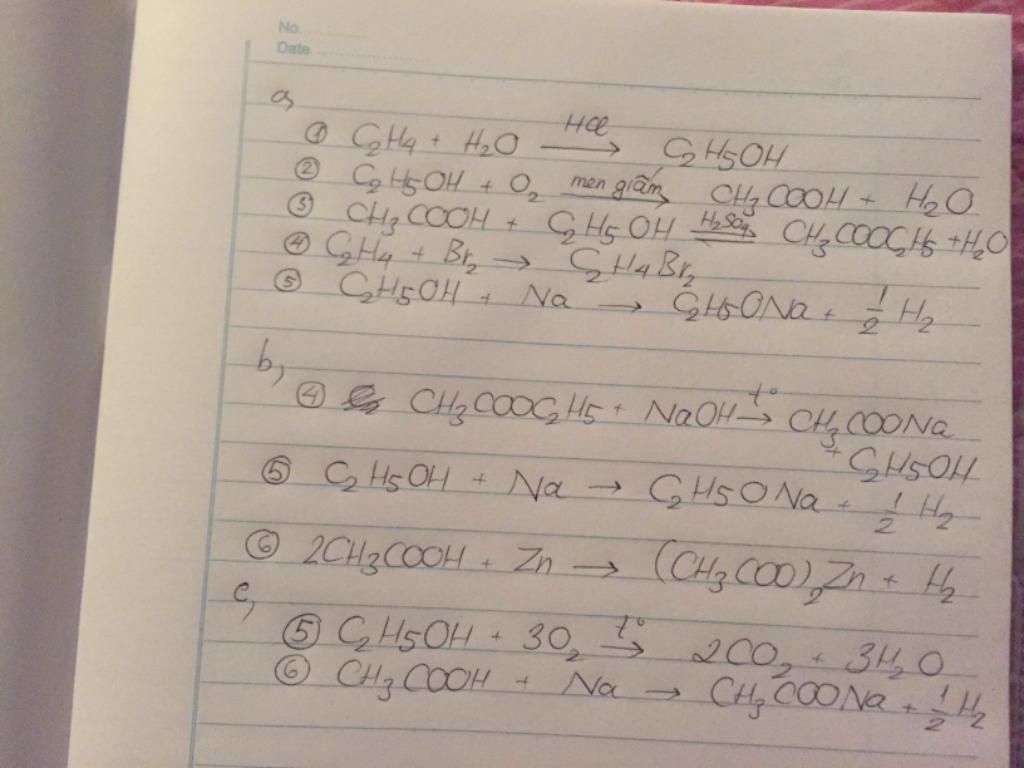 No. ............
Date ............
a,
① C₂H₄ + H₂O —HCl→ C₂H₅OH
② C₂H₅OH + O₂ —men giấm→ CH₃COOH + H₂O
③ CH₃COOH + C₂H₅OH ⇌ H₂SO₄ CH₃COOC₂H₅ + H₂O
④ C₂H₄ + Br₂ → C₂H₄Br₂
⑤ C₂H₅OH + Na → C₂H₅ONa + 1/2 H₂
b,
④ CH₃COOC₂H₅ + NaOH —t°→ CH₃COONa
+ C₂H₅OH
⑤ C₂H₅OH + Na → C₂H₅ONa + 1/2 H₂
⑥ 2CH₃COOH + Zn → (CH₃COO)₂Zn + H₂
c,
⑤ C₂H₅OH + 3O₂ —t°→ 2CO₂ + 3H₂O
⑥ CH₃COOH + Na → CH₃COONa + 1/2 H₂